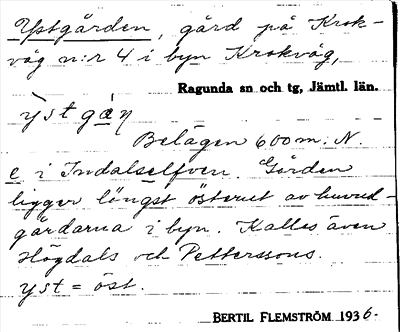 Ystgården, gård på Krok-
våg n:r 4 i byn Krokvåg,
Ragunda sn och tg, Jämtl. län.
ỳstgæ̀ṇ
Belägen 600 m. N.
e i Indalselfven. Gården
ligger längst österut av huvud-
gårdarna i byn. Kallas även
Högdals och Petterssons.
yst = öst.
BERTIL FLEMSTRÖM 1936.